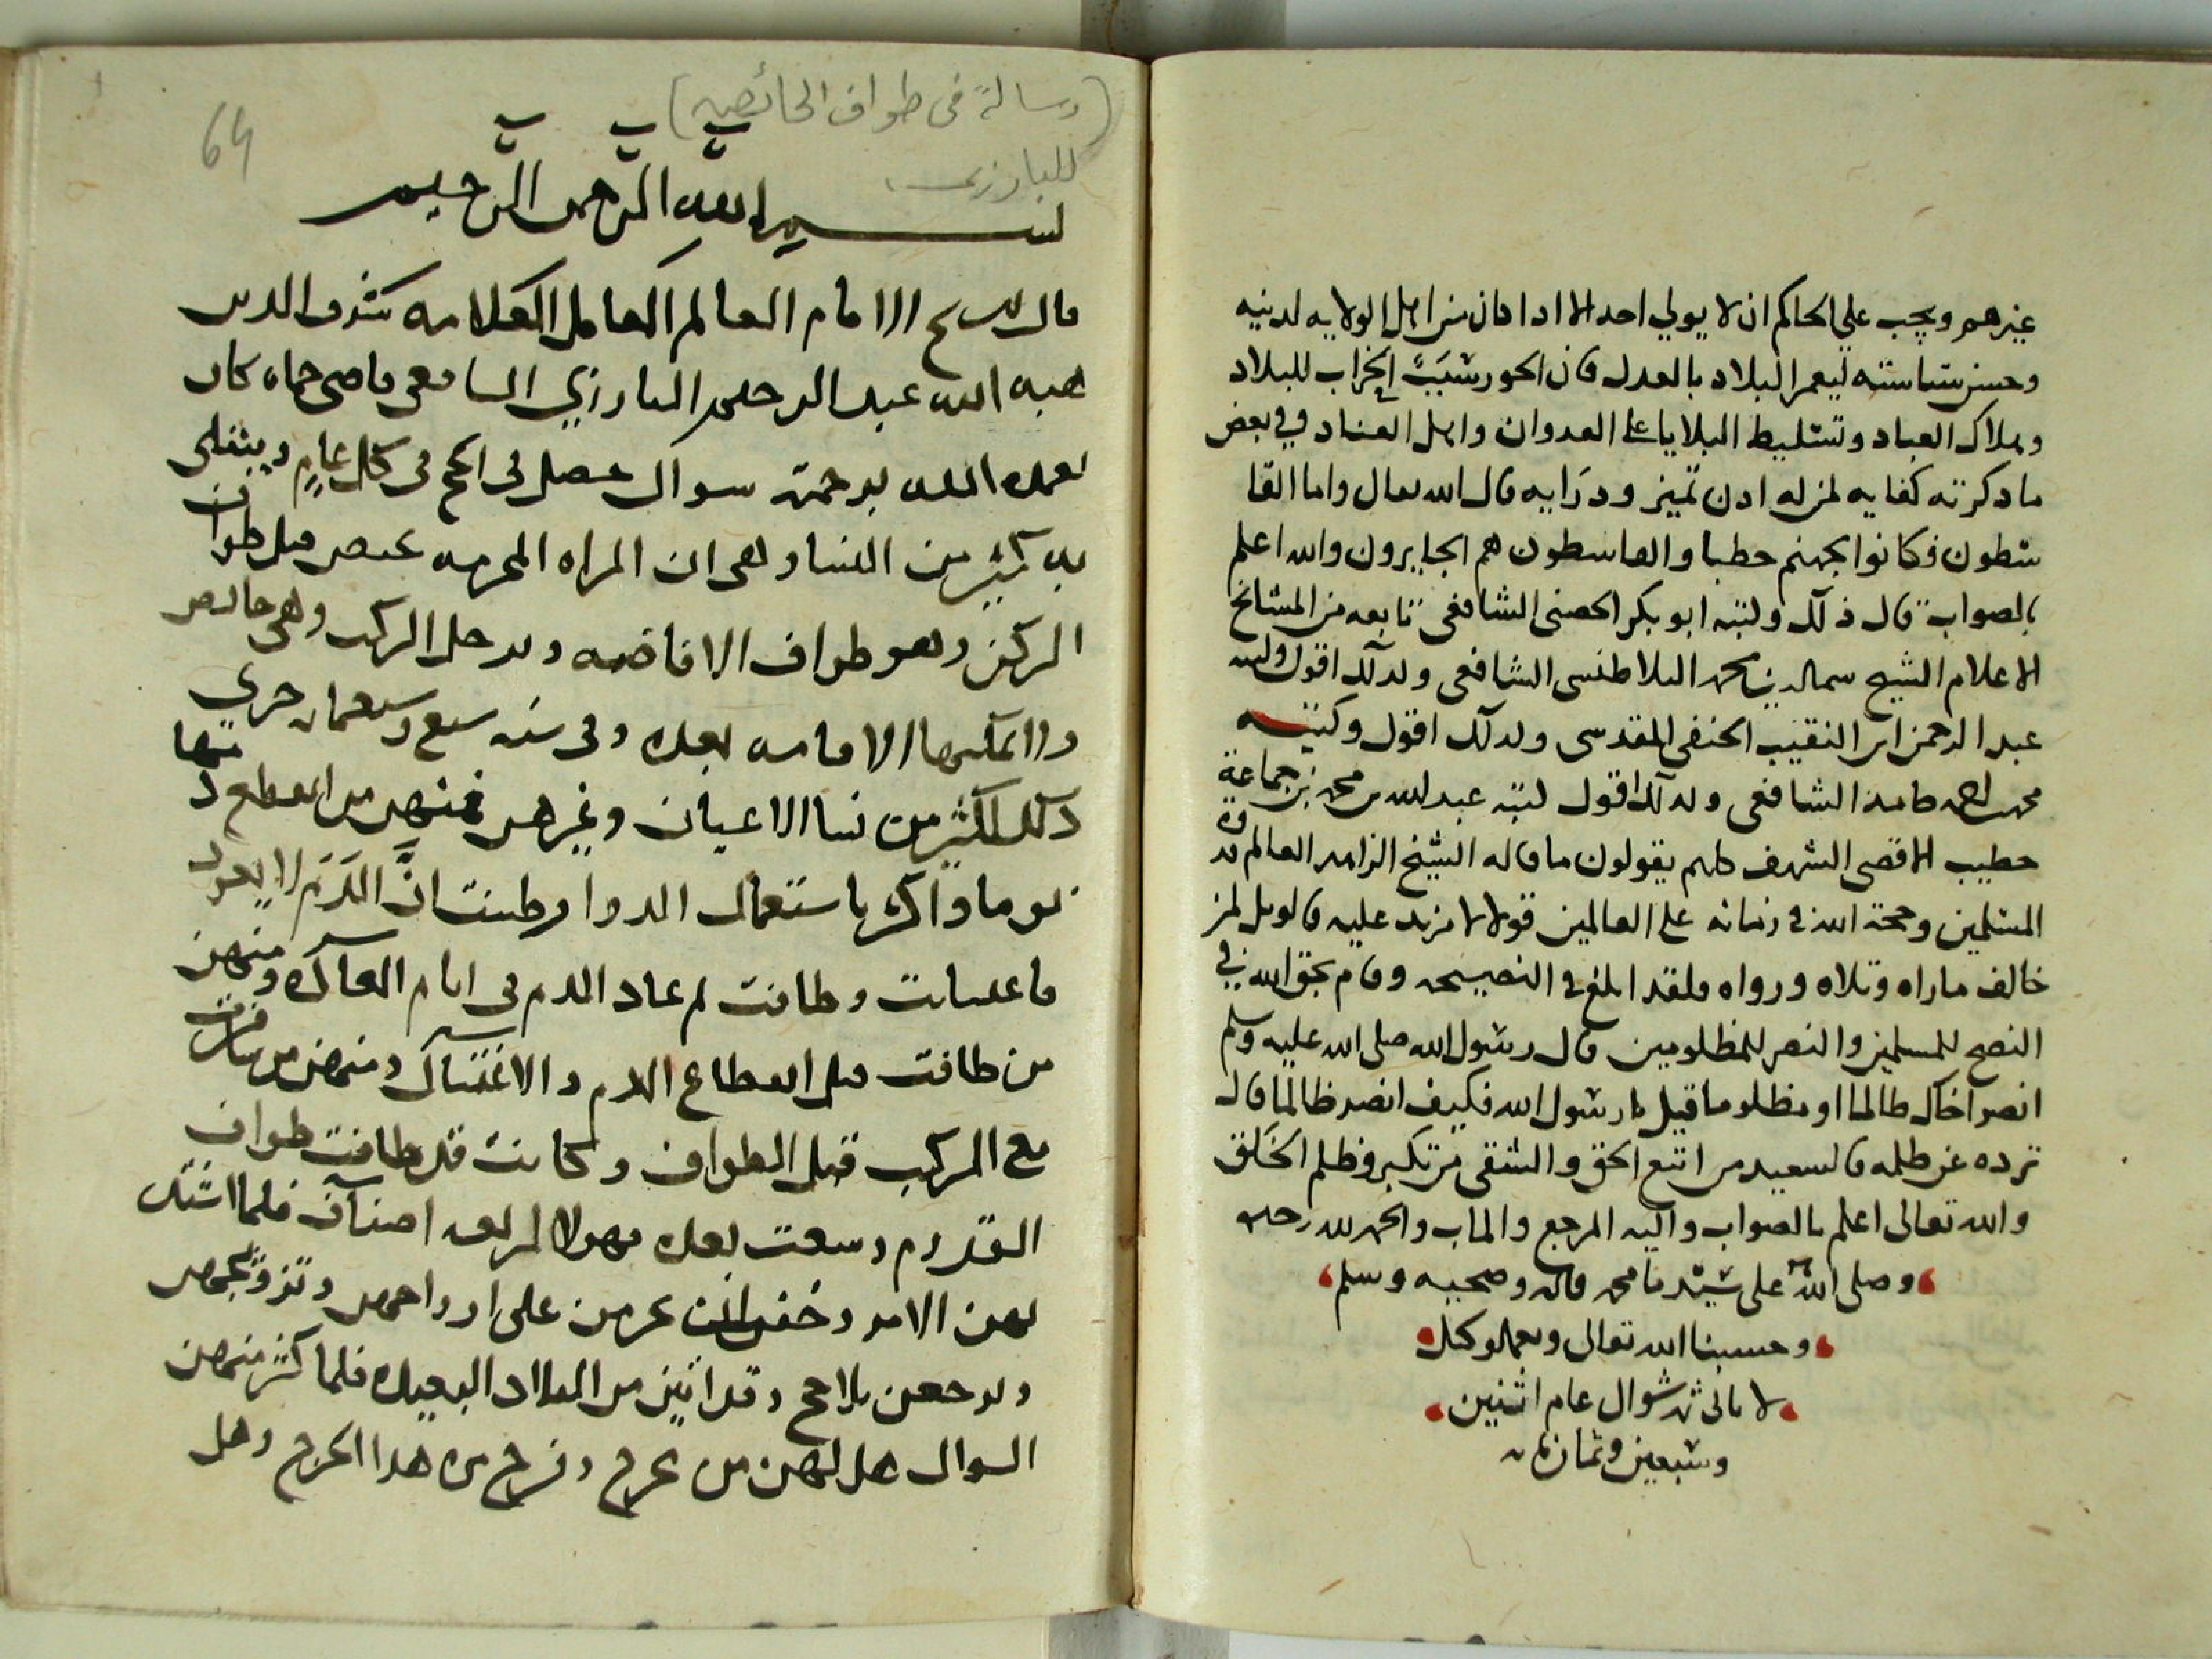 غيرهم ويجب على الحاكم ان لا يولي احد الا اذا كان من اهل الولايه لدينه
وحسن سياسته ليعمر البلاد بالعدل فان الجور سبب لخراب البلاد
وهلاك العباد وتسليط البلايا على العدوان واهل العناد وفي بعض
ما ذكرته كفايه لمن له ادن تمييز ودرايه قال الله تعالى واما القا
سطون فكانوا لجهنم حطبا والقاسطون هم الجايرون والله اعلم
بالصواب قال ذلك وكتبه ابو بكر الحصني الشافعي تابعه من المشايخ
الاعلام الشيخ محمد البلاطنسي الشافعي وكذلك اقول وكتبه
عبد الرحمن ابن النقيب الحنفي المقدسي وكذلك اقول وكتبه
محمد حامد الشافعي وكذلك اقول كتبه عبد الله بن محمد بن جماعة
خطيب الاقصى الشريف كلهم يقولون ما قاله الشيخ الزاهد العالم قدوة
المسلمين وحجة الله في زمانه على العالمين قولا لا مزيد عليه فالويل لمن
خالف ما راه وتلاه ورواه فلقد ابلغ في النصيحه وقام بحق الله في
النصح للمسلمين والنصر للمظلومين قال رسول الله صلى الله عليه وسلم
انصر اخاك ظالما او مظلوما قيل يا رسول الله فكيف انصر ظالما قال
ترده عن ظلمه فالسعيد من اتبع الحق والشقي من تكبر وظلم الخلق
والله تعالى اعلم بالصواب واليه المرجع والماب والحمد لله وحده
وصلى الله على سيدنا محمد واله وصحبه وسلم
وحسبنا الله تعالى ونعم الوكيل
شوال عام اثنين
وسبعين وثمان مائه
(رسالة في طواف الحائضه)
للبارزي
64
بسم الله الرحمن الرحيم
قال الشيخ الامام العالم العامل العلامه شرف الدين
هبه الله عبد الرحيم البارزي الشافعي قاضي حماه كان
تغمده الله برحمته سوال حصل في الحج في كل عام ويبتلى
به كثير من النسا وهي ان المراه المحرمه تحيض قبل طواف
الركن وهو طواف الافاضه ويرحل الركب وهي حائض
ولا يمكنها الاقامه بعده وفي سنه سبع وسبعمايه جرى
ذلك لكثير من نسا الاعيان وغيرهم فمنهن من انقطع دمها
يوما واكثر باستعمال الدوا وظنت ان الدم لا يعود
فاغتسلت وطافت ثم عاد الدم في ايام العادة ومنهن
من طافت قبل انقطاع الدم والاغتسال ومنهن من سافرت
مع الركب قبل الطواف وكانت قد طافت طواف
القدوم وسعت بعده فهولا اربعه اصناف فلما اشتد
بهن الامر وخفن ان يحرمن على ازواجهن وتزويجهن
ويرجعن بلا حج وقد اتين من البلاد البعيدة فلما كثر منهن
السوال هل لهن من مخرج وفرج من هذا الحرج وهل